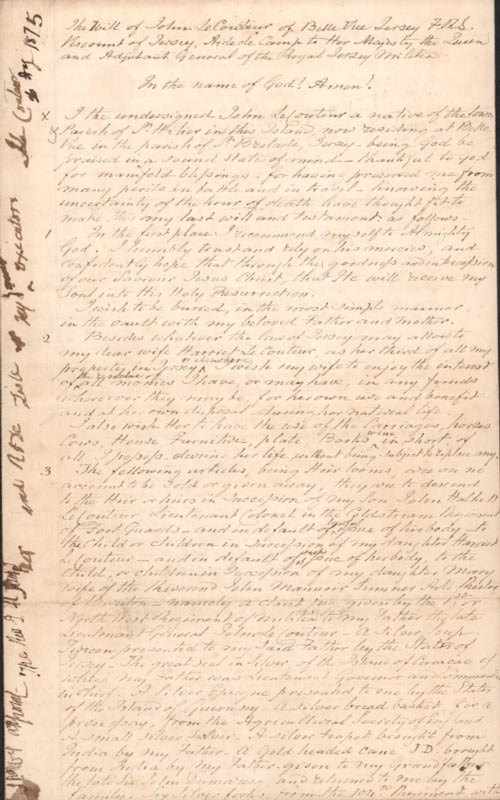 The Will of John Le Couteur of Belle Vue Jersey F.R.S.
Viscount of Jersey, Aide de Camp to Her Majesty the Queen
and Adjutant General of the Royal Jersey Militia.
In the name of God! Amen!
x I the undersigned John Le Couteur a native of the town
Parish of St. Helier in this Island, now residing at Belle
Vue in the parish of St. Brelade, Jersey - being God be
praised in a sound state of mind - thankful to God
for manifold blessings - for having preserved me from
many perils in battle and in travel - knowing the
uncertainty of the hour of death have thought fit to
make this my last will and testament as follows -
1 In the first place I recommend myself to Almighty
God. I humbly trust and rely on his mercies, and
confidently hope that through the goodness and intercession
of our Saviour Jesus Christ, that He will receive my
soul into His Holy Resurrection.
I wish to be buried, in the most simple manner,
in the vault with my beloved Father and Mother.
2 Besides whatever the law of Jersey may allow to
my dear wife Harriet Le Couteur, as her third of all my
property in Jersey, I wish my wife to enjoy the interest
of all monies I have, or may have, in any funds
wherever they may be, for her own use and benefit
and at her own disposal during her natural life.
I also wish Her to have the use of the carriages, horses
Cows, House Furniture, plate, Books, wine in short of
all I possess during her life without being subject to replace any.
3 The following articles, being Heir looms, are on no
account to be sold or given away, they are to descend
to the Heir or heirs in succession of my Son John Halkett
Le Couteur, Lieutenant Colonel in the Coldstream Regiment
of Foot Guards - and in default of issue of his body - to
the Child or children in succession of my daughter Harriet
Le Couteur - and in default of issue of her body, to the
child, or children in succession of my daughter Mary
wife of the Reverend John Manners Sumner
namely a Claret jug given by the 1st or
North West Regiment of militia to my Father the late
Lieutenant General John Le Couteur - A Silver Soup
Tureen presented to my said Father by the States of
Jersey - The great seal in Silver of the Island of Curacao of
which my Father was Lieutenant Governor and Commander
in Chief. A Silver Epergne presented to me by the States
of the Island of Guernsey. A silver bread basket, for a
prize essay, from the Agricultural Society of England
A small silver Salver. A silver teapot brought from
India by my Father. A Gold headed cane J.D. brought
from India by my Father given to my Grandfather
the late Sir John Dumaresq and returned to me by the
Family. Six silver forks, from the 104th Regiment with